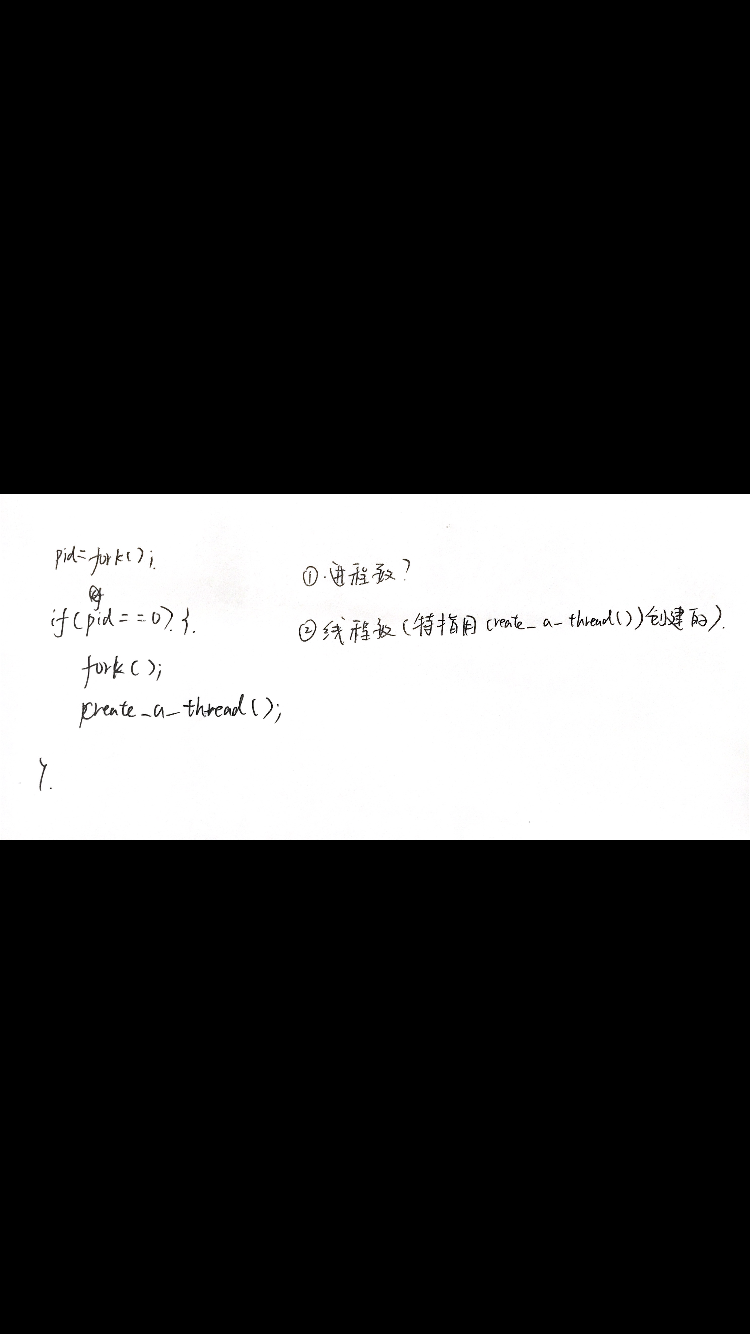 pid=fork();
if(pid==0).{.
fork();
create_a_thread();
}.
①.进程数?
②线程数(特指用create_a_thread())创建的).